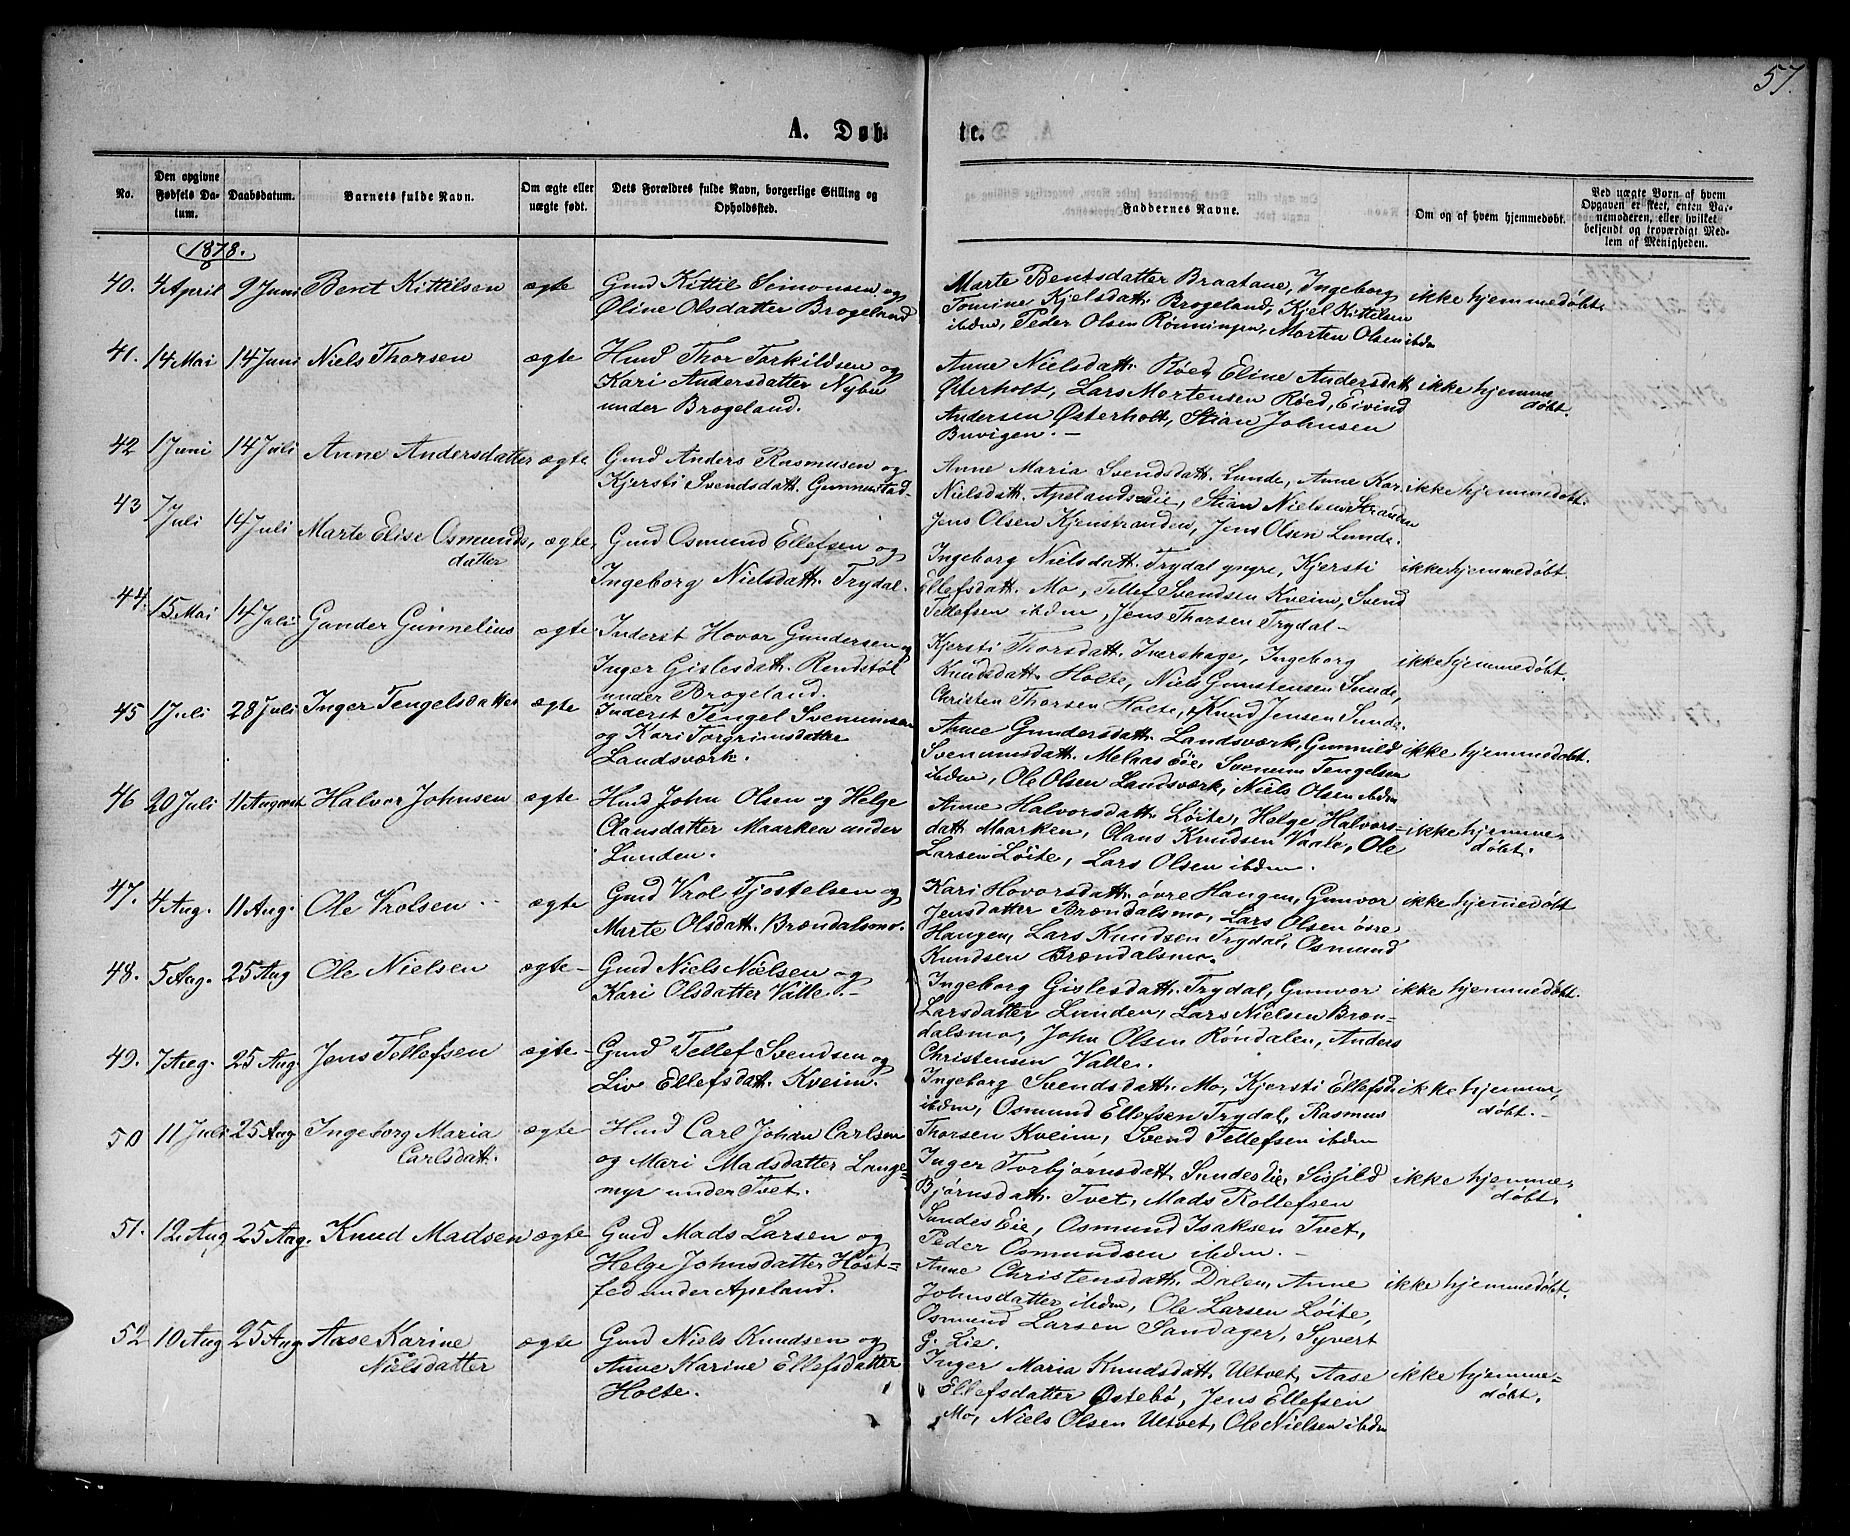 57.
A. Døbte.
No.
Den opgivne Fødsels Datum.
Daabsdatum.
Barnets fulde Navn.
Om ægte eller uægte født.
Dets Forældres fulde Navn, borgerlige Stilling og Opholdssted.
Faddernes Navne.
Om og af hvem hjemmedøbt.
Ved uægte Børn af hvem Opgaven er skeet, enten Barnemoderen, eller hvilket bekjendt og troværdigt Medlem af Menigheden.
1878.
40. 4 April 9 Juni Bent Kittilsen ægte
Gmd Kittil Simonsen og
Oline Olsdatter Brogeland
Marte Bentsdatter Braatane, Ingeborg
Tomine Kjelsdatt. Brogeland, Kjel Kittilsen
ibdm, Peder Olsen Rönningen, Morten Olsen ibdm
ikke hjemmedøbt.
41. 14 Mai 14 Juni Niels Thorsen ægte
Hmd Thor Torkildsen og
Kari Andersdatter Nybu
under Brogeland.
Anne Nielsdatt. Röed, Eline Andersdatt
Østerholt, Lars Mortensen Röed, Eivind
Andersen Østerholt, Stian Johnsen
Buvigen. –
ikke hjemme
døbt.
42 1 Juni 14 Juli Anne Andersdatter ægte
Gmd Anders Rasmusen og
Kjersti Svendsdatt. Gunnestad-
Anne Maria Svendsdatt. Lunde, Anne Kar.
Nielsdatt. Apelandseie, Stian Nielsen Stranden
Jens Olsen Kjenstranden, Jens Olsen Lunde.
ikke hjemmedöbt.
43 1 Juli 14 Juli Marte Elise Osmunds,
datter
ægte,
Gmd Osmund Ellefsen og
Ingeborg Nielsdatt. Trydal.
Ingeborg Nielsdatt. Trydal yngre, Kjersti
Ellefsdatt. Mo, Tellef Svendsen Kveim, Svend
Tellefsen ibdm, Jens Thorsen Trydal –
ikke hjemmedöbt.
44. 15 Mai 14 Juli Gunder Gunnelius ægte
Inderst Hovor Gundersen og
Inger Gislesdatt. Rendstöl
under Brogeland.
Kjersti Thorsdatt. Ivershage, Ingeborg
Knudsdatt. Holte, Niels Gunstensen Sunde,
Christen Thorsen Holte, Knud Jensen Sunde.
ikke hjemmedöbt.
45 1 Juli 28 Juli Inger Tengelsdatter ægte
Inderst Tengel Svenumsen
og Kari Torgrimsdatter
Landsværk.
Anne Gundersdatt. Landsværk, Gunnild
Svenumsdatt. Melaas Eie, Svenum Tengelsen
ibdm, Ole Olsen Landsværk, Niels Olsen ibdm
ikke hjemmedøbt.
46 20 Juli 11 August Halvor Johnsen ægte
Hmd John Olsen og Helge
Olansdatter Maarken under
Lunden.
Anne Halvorsdatt. Löite, Helge Halvors=
datt Maarken, Olans Knudsen Vaale, Ole
Larsen Löite, Lars Olsen ibdm.
ikke hjemme-
døbt.
47. 4 Aug. 11 Aug. Ole Vrolsen. ægte
Gmd Vrol Tjostelsen og
Marte Olsdatt. Brændalsmo.
Kari Hovorsdatt. övre Haugen, Gunvor
Jensdatter Brændalsmo, Lars Olsen övre
Haugen, Lars Knudsen Trydal, Osmund
Knudsen Brændalsmo.
ikke hjemmedöbt
48. 5 Aug. 25 Aug Ole Nielsen ægte –
Gmd Niels Nielsen og
Kari Olsdatter Valle. –
Ingeborg Gislesdatt. Trydal, Gunvor
Larsdatter Lunden, Lars Nielsen Bræn-
dalsmo, John Olsen Röndalen, Anders
Christensen Valle.
ikke hjemmedöbt.
49. 7 Aug. 25 Aug. Jens Tellefsen ægte –
Gmd Tellef Svendsen og
Liv Ellefsdatt. Kveim.
Ingeborg Svendsdatt. Mo, Kjersti Ellefsd.
ibdm, Osmund Ellefsen Trydal, Rasmus
Thorsen Kveim, Svend Tellefsen ibdm
ikke hjemme,
døbt. –
50 11 Juli 25 Aug Ingeborg Maria
Carlsdatt.
ægte
Hmd Carl Johan Carlsen
og Mari Madsdatter Lange-
myr under Tvet.
Inger Torbjörnsdatt. Sundeslie, Sisjild
Bjørnsdatt. Tvet, Mads Rollefsen
Sundes Eie, Osmund Isaksen Tvet,
Peder Osmundsen ibdm. –
ikke hjemme-
døbt.
51. 12 Aug 25 Aug. Knud Madsen ægte
Gmd Mads Larsen og
Helge Johnsdatter Höst=
fed under Apeland.
Anne Christensdatt. Dalen, Anne
Johnsdatter ibdm, Ole Larsen Löite,
Osmund Larsen Sandager, Syvert
G. Lie.
ikke hjemmedöbt.
52 10 Aug 25 Aug Aase Karine
Nielsdatter
ægte
Gmd Niels Knudsen og
Anne Karine Ellefsdatter
Holte.
Inger Maria Knudsdatt. Ultvet, Aase
Ellefsdatter Østebö, Jens Ellefsen
Mo, Niels Olsen Ultvet, Ole Nielsen ibdm
ikke hjemme-
döbt.